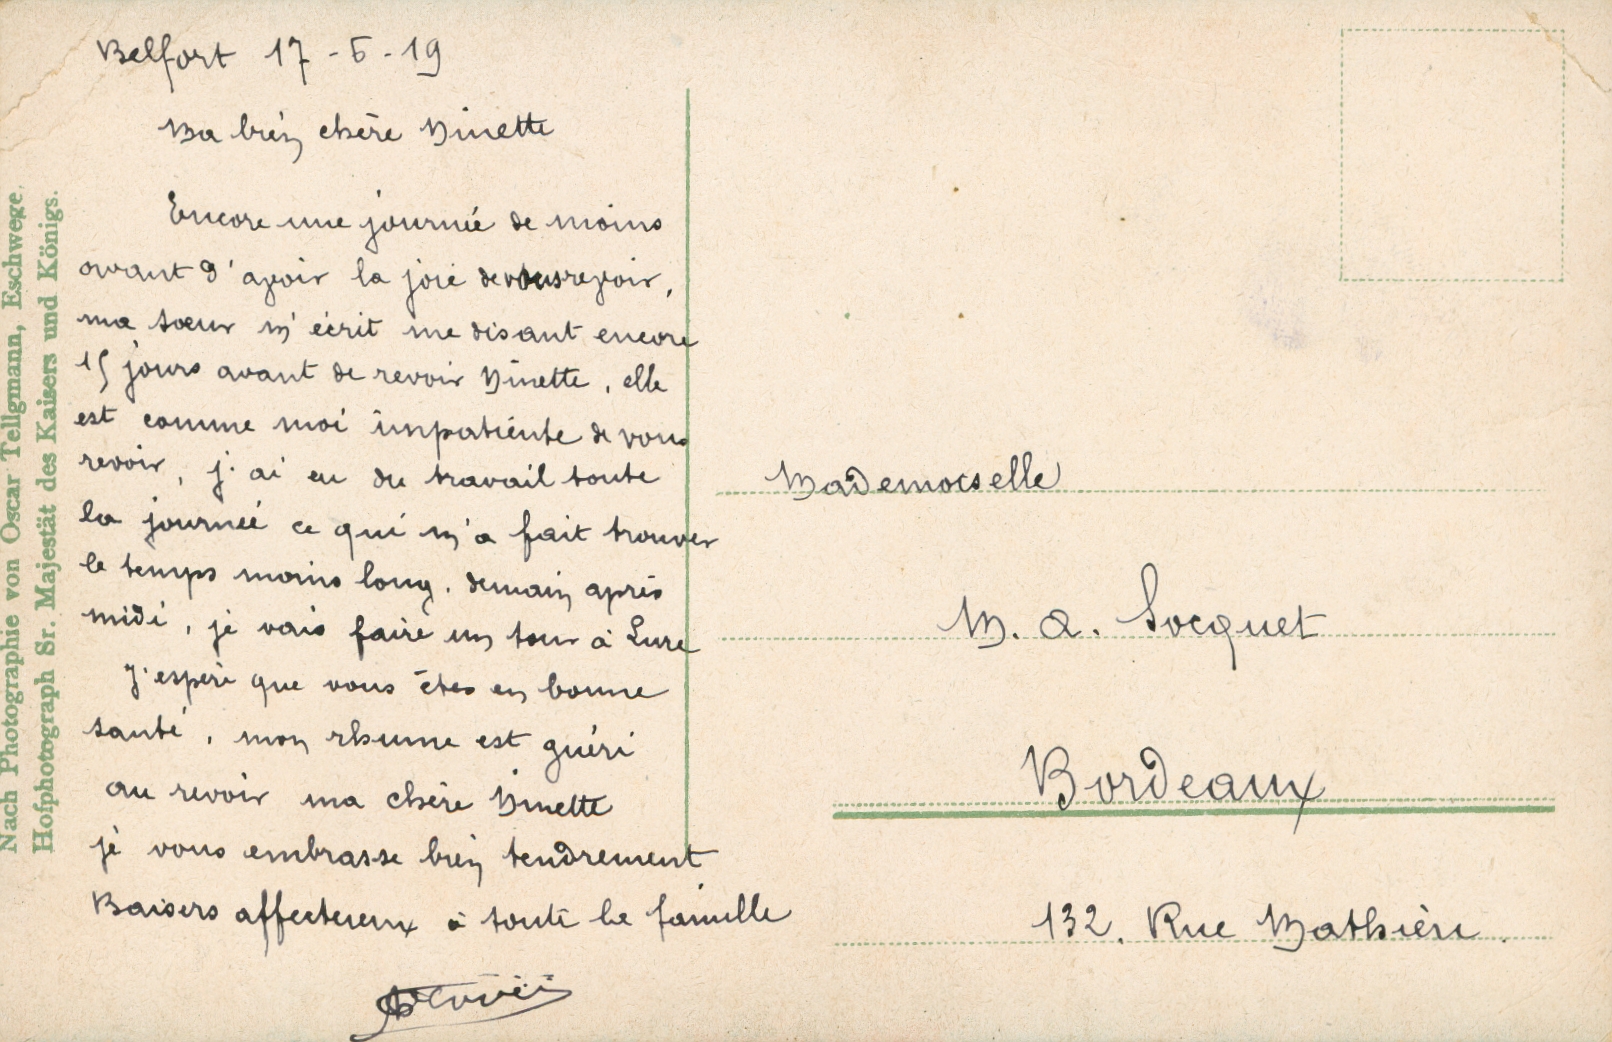 Belfort 17-5-19
Ma bien chère Ninette
Encore une journée de moins
avant d'avoir la joie de vous revoir,
ma sœur m'écrit me disant encore
15 jours avant de revoir Ninette, elle
est comme moi impatiente de vous
revoir, j'ai eu du travail toute
la journée ce qui m'a fait trouver
le temps moins long. demain après
midi, je vais faire un tour à Lure
J'espère que vous êtes en bonne
santé, mon rhume est guéri
au revoir ma chère Ninette
je vous embrasse bien tendrement
Baisers affectueux à toute la famille
Mademoiselle
M. A. Socquet
Bordeaux
132. Rue Mathieu.
Nach Photographie von Oscar Tellgmann, Eschwege,
Hofphotograph Sr. Majestät des Kaisers und Königs.